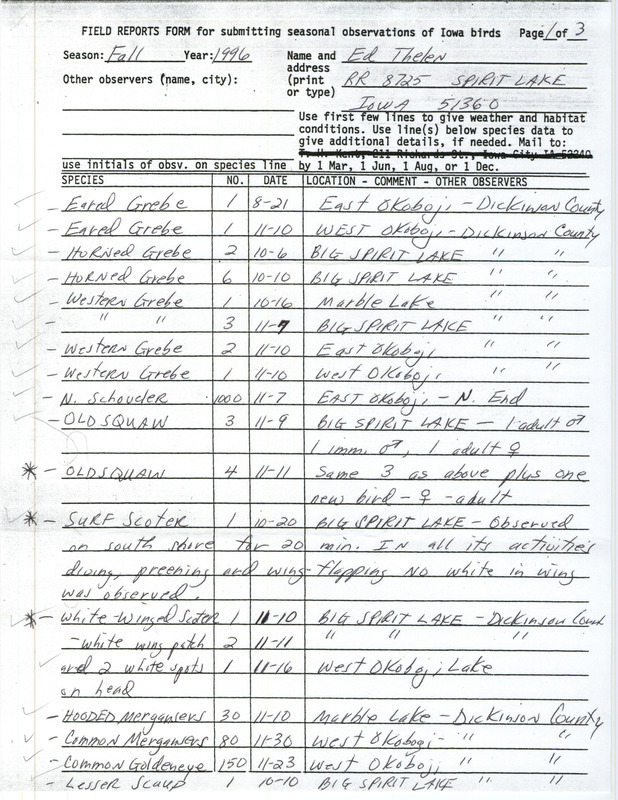 FIELD REPORTS FORM for submitting seasonal observations of Iowa birds Page 1 of 3
Season: Fall Year: 1996 Name and Ed Thelen
address
Other observers (name, city): (print RR 8725 SPIRIT LAKE
or type)
IOWA 51360
Use first few lines to give weather and habitat
conditions. Use line(s) below species data to
give additional details, if needed. Mail to:
T. H. Kent, 211 Richards St., Iowa City IA 52240
use initials of obsv. on species line by 1 Mar, 1 Jun, 1 Aug, or 1 Dec.
SPECIES NO. DATE LOCATION - COMMENT - OTHER OBSERVERS
- Eared Grebe 1 8-21 East Okoboji - Dickinson County
- Eared Grebe 1 11-10 WEST Okoboji - Dickinson County
- Horned Grebe 2 10-6 BIG SPIRIT LAKE " "
- Horned Grebe 6 10-10 BIG SPIRIT LAKE " "
- Western Grebe 1 10-16 Marble Lake " "
- " " 3 11-7 BIG SPIRIT LAKE " "
- Western Grebe 2 11-10 East Okoboji " "
- Western Grebe 1 11-10 West Okoboji " "
- N. Schouder 1000 11-7 EAST Okoboji - N. End
- OLDSQUAW 3 11-9 BIG SPIRIT LAKE - 1 adult ♂
1 imm. ♂, 1 adult ♀
* - OLDSQUAW 4 11-11 Same 3 as above plus one
new bird - ♀ - adult
* - Surf Scoter 1 10-20 BIG SPIRIT LAKE - Observed
on south shore for 20 min. IN all its activities
diving, preening and wing-flapping NO white in wing
was observed.
* - White-Winged Scoter 1 11-10 BIG SPIRIT LAKE - Dickinson Count
- white wing patch 2 11-11 " " "
and 2 white spots 1 11-16 West Okoboji Lake
on head
- HOODED Mergansers 30 11-10 Marble Lake - Dickinson County
- Common Mergansers 80 11-30 West Okobogi - " "
- Common Goldeneye 150 11-23 West Okoboji " "
- Lesser Scaup 1 10-10 BIG SPIRIT LAKE " "